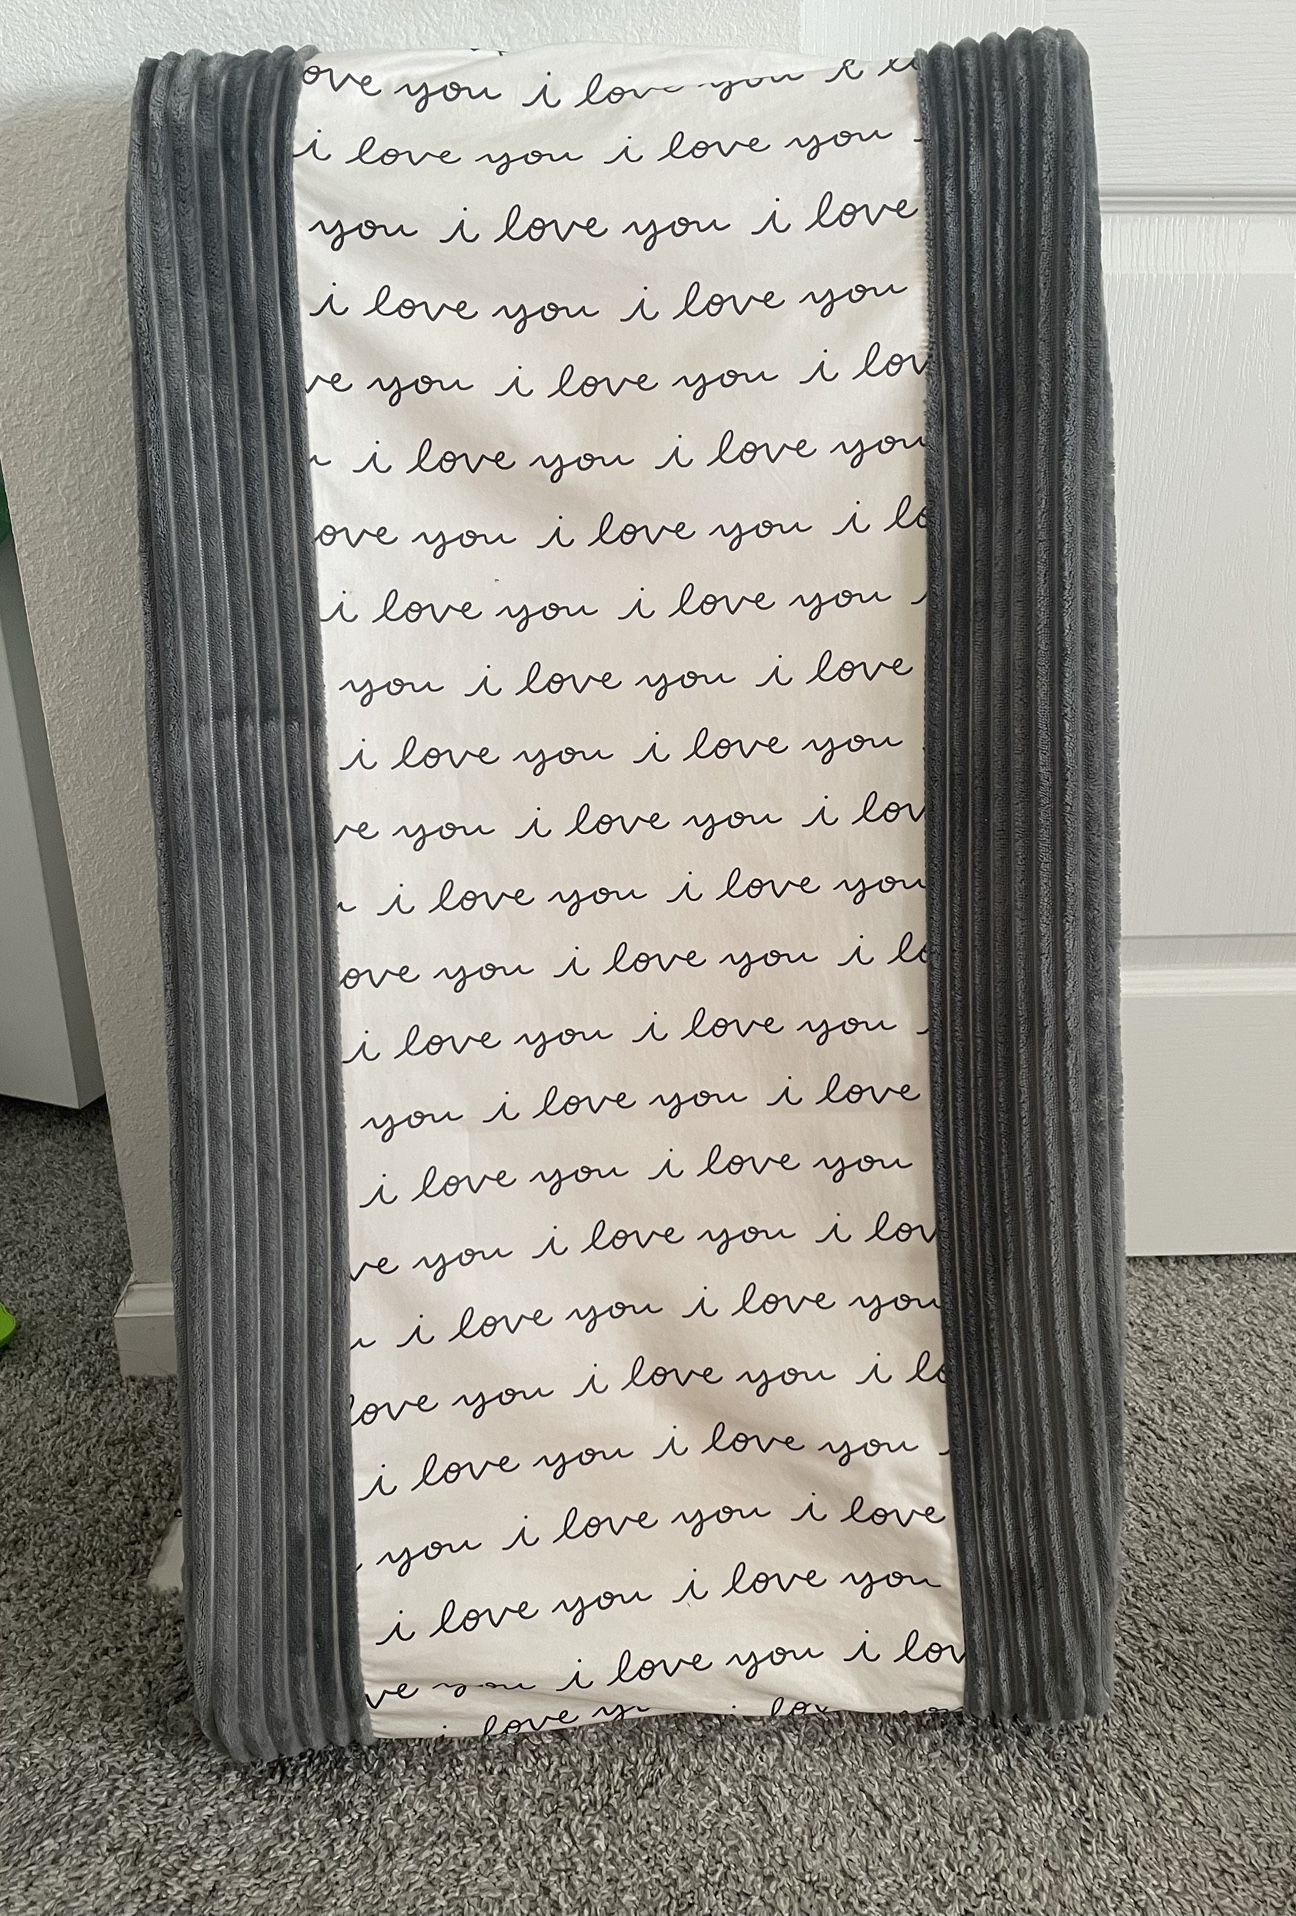 ove you i love you i
i love you i love you
you i love you i love
i love you i love you
ve you i love you i lov
i love you i love you
ove you i love you i lo
i love you i love you
you i love you i love
i love you i love you
ve you i love you i lov
i love you i love you
ove you i love you i lo
i love you i love you
you i love you i love
i love you i love you
ve you i love you i lov
i love you i love you
love you i love you i lo
i love you i love you
you i love you i love
i love you i love you
ve you i love you i lov
i love y i lov